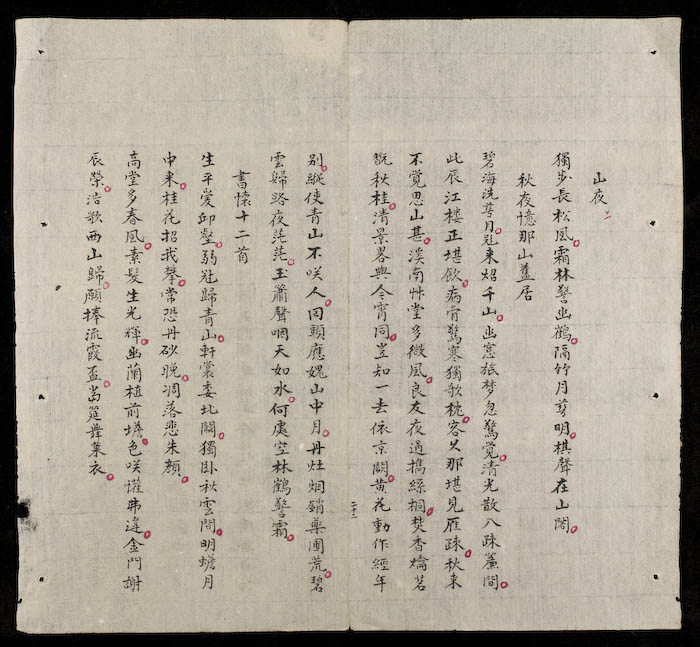 山夜
獨步長松風霜林警幽鶴隔竹月剪明棋聲在山閣
秋夜憶那山居
碧海洗月來炤千山幽窓祇梦忽驚覚清光散入疎簾間
此辰江楼正堪飲病骨驚寒獨欹枕客久那堪見雁疎秋来
不覚思山甚溪南艸堂多微風良友夜過携絲桐焚香爚茗
翫秋桂清景畧與今宵同豈知一去依京闕黄花動作經年
二十二
别縱使青山不咲人囘頭應媿山中月丹灶烟銷藥圃荒碧
雲歸路夜茫茫玉簫聲咽天如水何處空林鶴警霜
書懷十二首
生平爱邱壑弱冠歸青山軒裳委北闕獨卧秋雲間明蟾月
中来桂花招我攀常恐丹砂晚凋落悲朱顏
高堂多春風素髮生光輝幽蘭植前墀色咲懽弗違金門謝
辰榮浩歌西山歸願捧流霞盃當筵舞萊衣